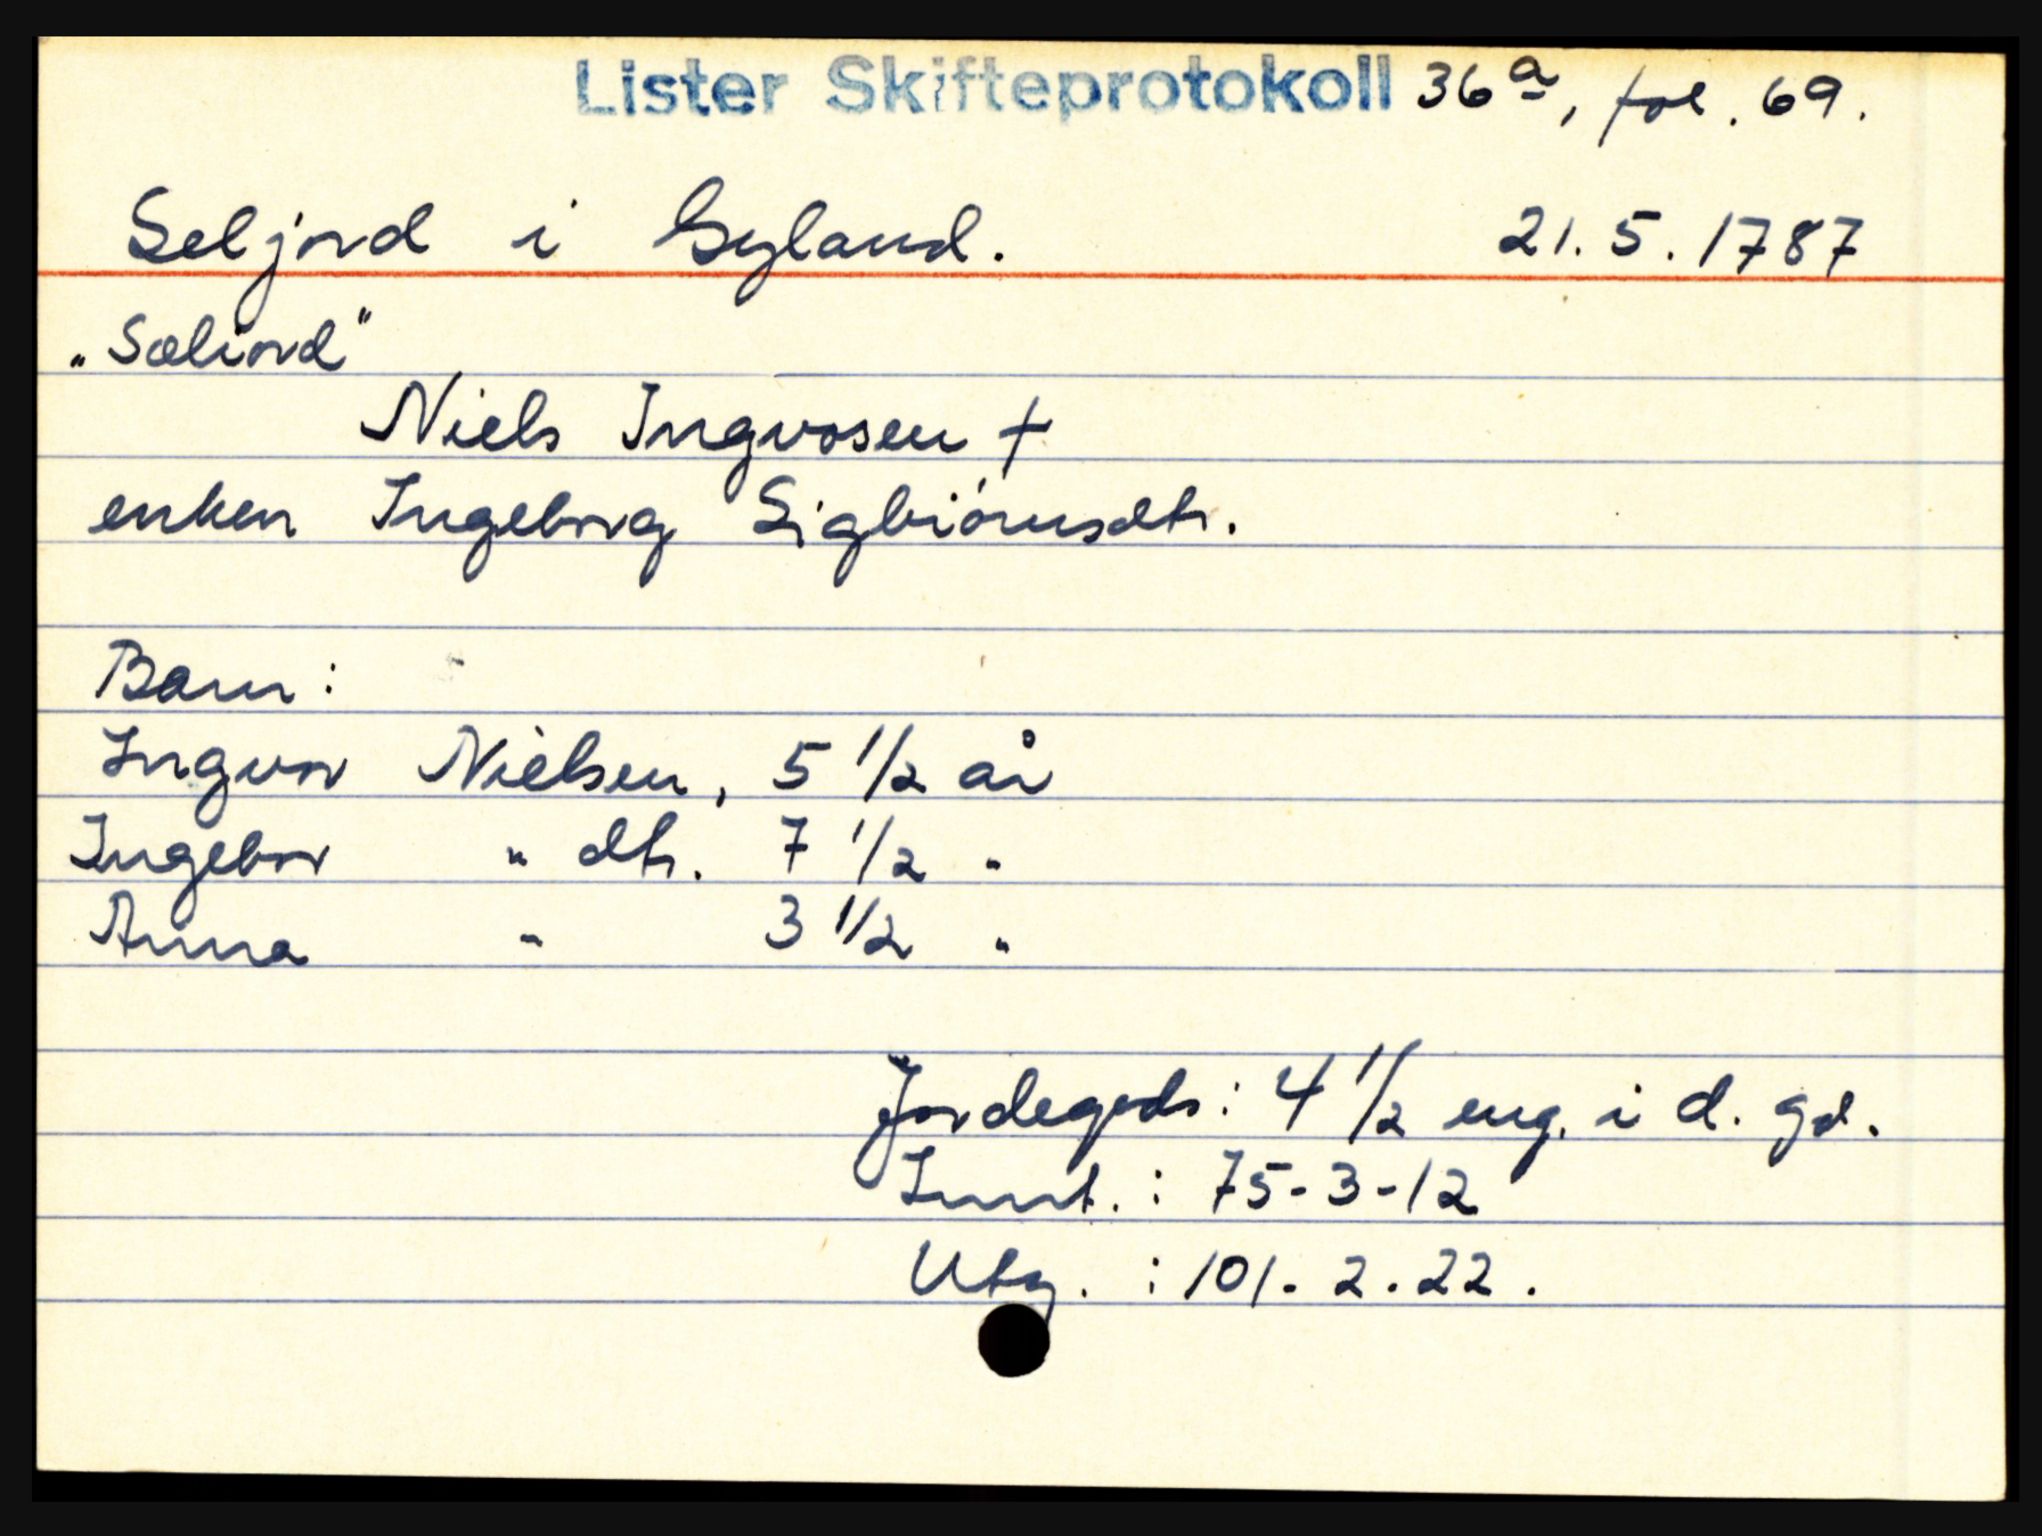 Lister Skifteprotokoll 36a, fol. 69.
Seljord i Gyland. 21.5.1787
"Sæliord"
Niels Ingvorsen †
enken Ingeborg Sigbiörnsdtr.
Barn:
Ingvor Nielsen, 5 1/2 år
Ingebor " dtr. 7 1/2 "
Anna " 3 1/2 "
Jordegods: 4 1/2 eng. i d. gd.
Innt. : 75-3-12
Utg. : 101. 2. 22.